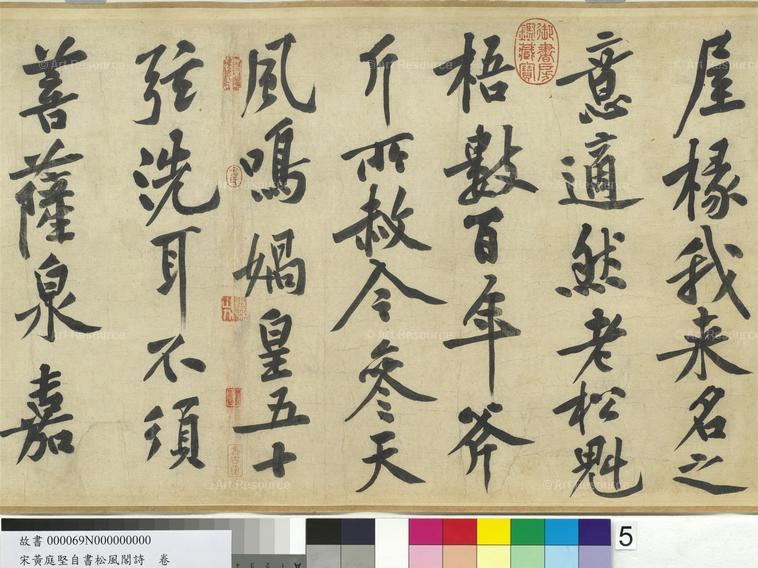 屋椽我来名之
意適然老松魁
梧數百年斧
斤所赦今參天
風鳴媧皇五十
弦洗耳不須
菩薩泉嘉
御書房鑑藏寶
故書 000069N000000000
宋黃庭堅自書松風閣詩　卷
5
© Art Resource